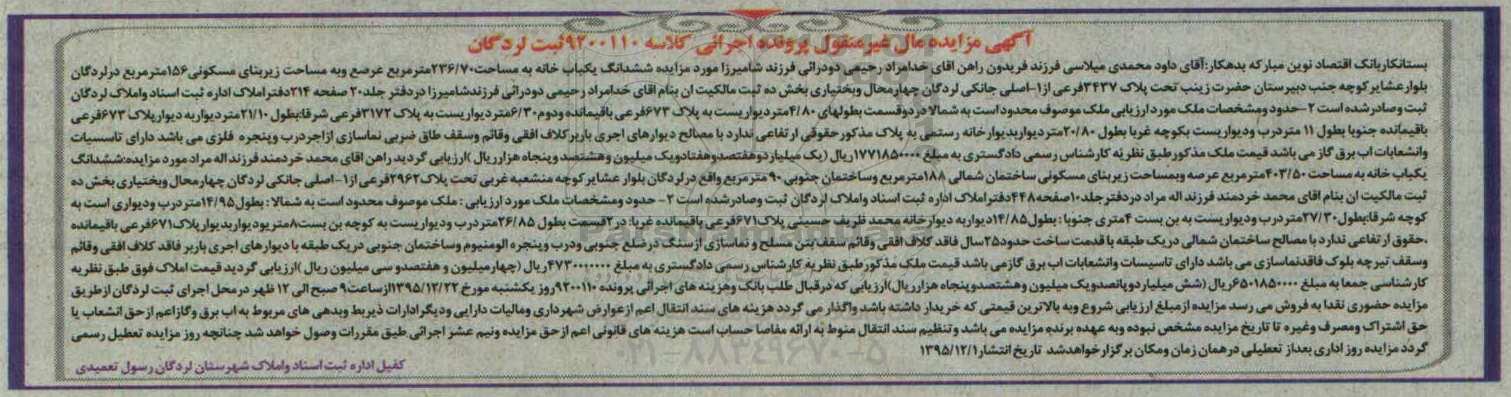 آگهی مزایده مال غیرمنقول پرونده اجرائی کلاسه ۹۲۰۰۱۱۰ ثبت لردگان
بستانکار:بانک اقتصاد نوین مبارکه بدهکار:آقای داود محمدی میلاسی فرزند فریدون راهن اقای خدامراد رحیمی دودرائی فرزند شامیرزا مورد مزایده ششدانگ یکباب خانه به مساحت۲۳۶/۷۰مترمربع عرصه وبه مساحت زیربنای مسکونی۱۵۶مترمربع درلردگان
بلوارعشایر کوچه جنب دبیرستان حضرت زینب تحت پلاک ۳۴۳۷فرعی از۱-اصلی جانکی لردگان چهارمحال وبختیاری بخش ده ثبت مالکیت ان بنام اقای خدامراد رحیمی دودرائی فرزندشامیرزا دردفتر جلد۲۰ صفحه ۲۱۴دفتراملاک اداره ثبت اسناد واملاک لردگان
ثبت وصادرشده است ۲-حدود ومشخصات ملک مورد ارزیابی ملک موصوف محدود است به شمالا دردوقسمت بطولهای ۴/۸۰متردیواریست به پلاک ۶۷۳فرعی باقیمانده ودوم۶/۳۰متردیواریست به پلاک ۳۱۷۲فرعی شرقا:بطول۲۱/۱۰متردیواربه دیوارپلاک۶۷۳فرعی
باقیمانده جنوبا بطول ۱۱ متردرب ودیواریست بکوچه غربا بطول ۲۰/۸۰متردیواربدیوارخانه رستمی به پلاک مذکورحقوقی ارتفاعی ندارد با مصالح دیوارهای اجری باربرکلاف افقی وقائم وسقف طاق ضربی نماسازی ازاجردرب وپنجره فلزی می باشد دارای تاسیسات
وانشعابات اب برق گاز می باشد قیمت ملک مذکورطبق نظریه کارشناس رسمی دادگستری به مبلغ ۱۷۷۱۸۵۰۰۰۰ریال (یک میلیاردوهفتصدوهفتادویک میلیون وهشتصدوپنجاه هزارریال)ارزیابی گردید راهن اقای محمد خردمند فرزند اله مراد مورد مزایده:ششدانگ
یکباب خانه به مساحت ۴۰۳/۵۰مترمربع عرصه وبمساحت زیربنای مسکونی ساختمان شمالی ۱۸۸مترمربع وساختمان جنوبی ۹۰ مترمربع واقع درلردگان بلوار عشایر کوچه منشعبه غربی تحت پلاک۲۹۶۲فرعی از۱- اصلی جانکی لردگان چهارمحال وبختیاری بخش ده
ثبت مالکیت ان بنام اقای محمد خردمند فرزند اله مراد دردفترجلد۱۰صفحه۴۴۸دفتراملاک اداره ثبت اسناد واملاک لردگان ثبت وصادرشده است ۲- حدود ومشخصات ملک مورد ارزیابی : ملک موصوف محدود است به شمالا : بطول۱۴/۹۵متردرب ودیواری است به
کوچه شرقا:بطول۲۷/۳۰متردرب ودیواریست به بن بست ۴متری جنوبا : بطول۱۴/۸۵دیواربه دیوارخانه محمد ظریف حسینی پلاک۶۷۱فرعی باقیمانده غربا: در۲قسمت بطول ۲۶/۸۵متردرب ودیواریست به کوچه بن بست۸متریودیواربدیوارپلاک۶۷۱فرعی باقیمانده
.حقوق ارتفاعی ندارد با مصالح ساختمان شمالی دریک طبقه با قدمت ساخت حدود۲۵سال فاقد کلاف افقی وقائم سقف بتن مسلح و نماسازی ازسنگ درضلع جنوبی ودرب وپنجره الومنیوم وساختمان جنوبی دریک طبقه با دیوارهای اجری باربر فاقد کلاف افقی وقائم
وسقف تیرچه بلوک فاقدنماسازی می باشد دارای تاسیسات وانشعابات اب برق گازمی باشد قیمت ملک مذکورطبق نظریه کارشناس رسمی دادگستری به مبلغ ۴۷۳۰۰۰۰۰۰۰ریال (چهارمیلیون و هفتصدو سی میلیون ریال )ارزیابی گردید قیمت املاک فوق طبق نظریه
کارشناسی جمعا به مبلغ ۶۵۰۱۸۵۰۰۰۰ریال (شش میلیاردوپانصدویک میلیون وهشتصدوپنجاه هزارریال)ارزیابی که درقبال طلب بانک وهزینه های اجرائی پرونده ۹۲۰۰۱۱۰روز یکشنبه مورخ ۱۳۹۵/۱۲/۲۲ازساعت۹ صبح الی ۱۲ ظهر درمحل اجرای ثبت لردگان ازطریق
مزایده حضوری نقدا به فروش می رسد مزایده ازمبلغ ارزیابی شروع وبه بالاترین قیمتی که خریدار داشته باشد واگذار می گردد هزینه های سند انتقال اعم ازعوارض شهرداری ومالیات دارایی ودیگرادارات ذیربط وبدهی های مربوط به اب برق وگازاعم ازحق انشعاب یا
حق اشتراک ومصرف وغیره تا تاریخ مزایده مشخص نبوده وبه عهده برنده مزایده می باشد وتنظیم سند انتقال منوط به ارائه مفاصا حساب است هزینه های قانونی اعم ازحق مزایده ونیم عشر اجرائی طبق مقررات وصول خواهد شد چنانچه روز مزایده تعطیل رسمی
گردد مزایده روز اداری بعداز تعطیلی درهمان زمان ومکان برگزارخواهدشد تاریخ انتشار۱۳۹۵/۱۲/۱
کفیل اداره ثبت اسناد واملاک شهرستان لردگان رسول تعمیدی
ParsNamadData
۰۲۱-۸۸۳۴۹۶۷۰-۵